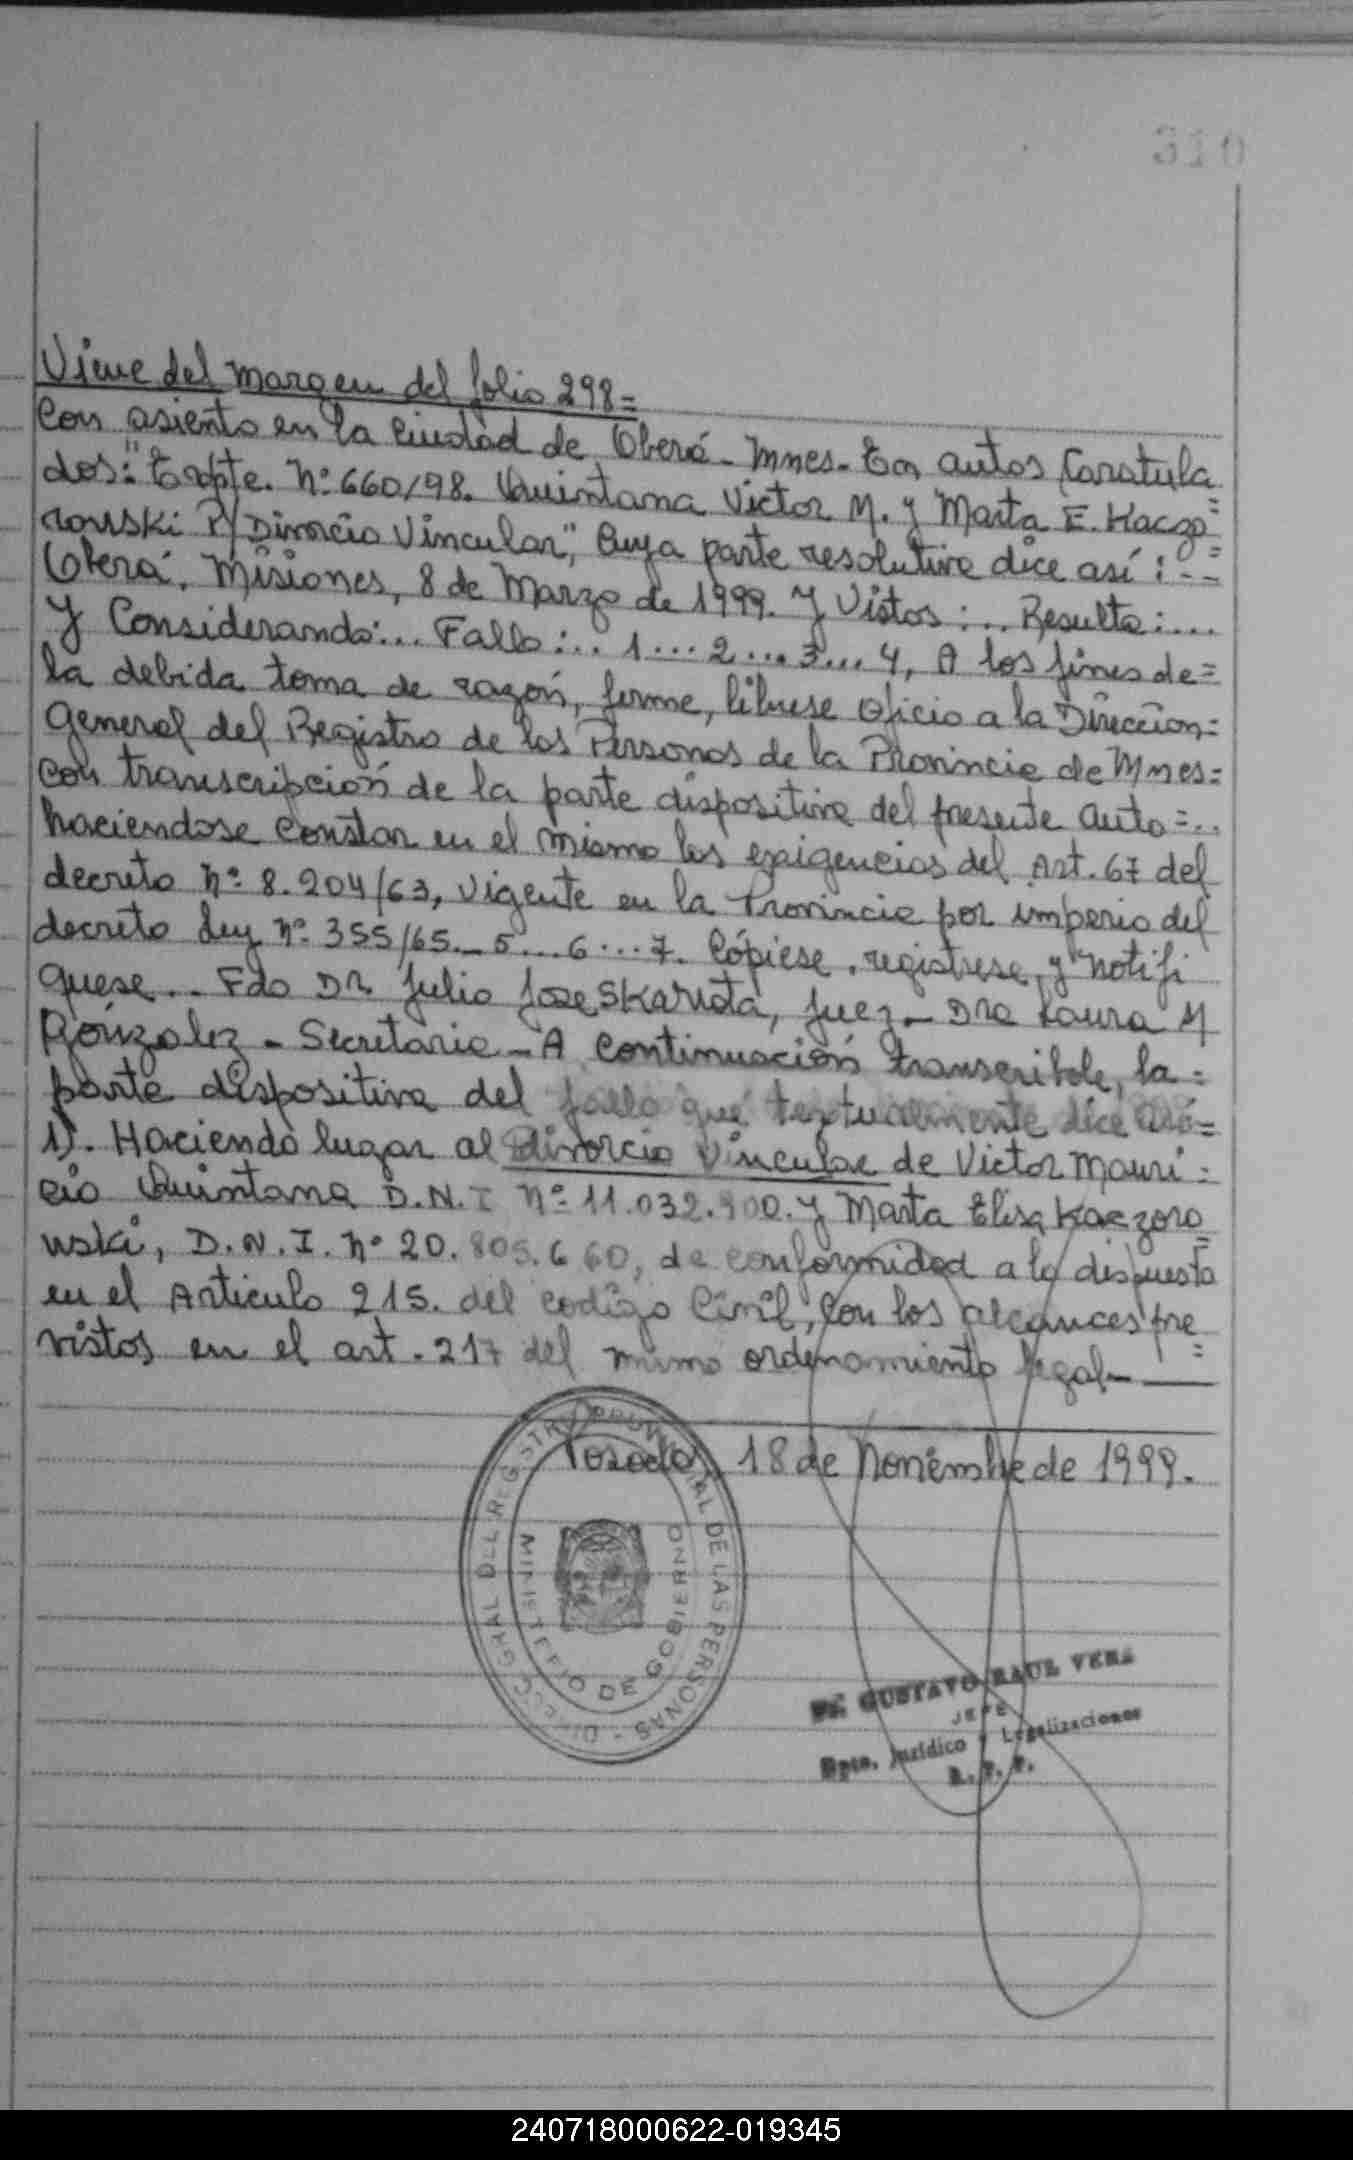 310
Viene del margen del folio 298=
Con asiento en la Ciudad de Oberá - Mnes. En autos Caratula
dos: "Expte. Nº 660/98. Quintana Victor M. y Marta E. Kaczo=
rowski P/ Divorcio Vincular", Cuya parte resolutiva dice así: - -
Oberá, Misiones, 8 de Marzo de 1999. Y Vistos: ... Resulta: ...
Y Considerando: ... Fallo: ... 1 ... 2 ... 3 ... 4, A los fines de=
la debida toma de razón, firme, librese oficio a la Direccion=
General del Registro de las Personas de la Provincia de Mnes=
con transcripción de la parte dispositiva del presente auto=..
haciendose constar en el mismo las exigencias del Art. 67 del
decreto nº 8.204/63, vigente en la Provincia por imperio del
decreto ley nº 355/65._ 5 ... 6 ... 7. Cópiese, registrese, y notifi
quese .. Fdo Dr Julio Jose Skanata, Juez - Dra Laura M
Gónzalez - Secretaria - A continuación transcribole, la=
parte dispositiva del fallo que textualmente dice así=
1). Haciendo lugar al Divorcio Vincular de Victor Mauri=
cio Quintana D.N.I Nº 11.032.900. y Marta Elisa Kaczoro
wski, D.N.I. Nº 20.805.660, de conformidad a lo dispuesto
en el Articulo 215. del codigo Civil, Con los alcances pre
vistos en el art. 217 del mismo ordenamiento legal-
Posadas 18 de Noviembre de 1999.
DIRECC GRAL DEL REGISTRO PROVINCIAL DE LAS PERSONAS -
MINISTERIO DE GOBIERNO
Dr. GUSTAVO RAUL VERA
JEFE
Dpto. Jurídico y Legalizaciones
R. P. P.
240718000622-019345